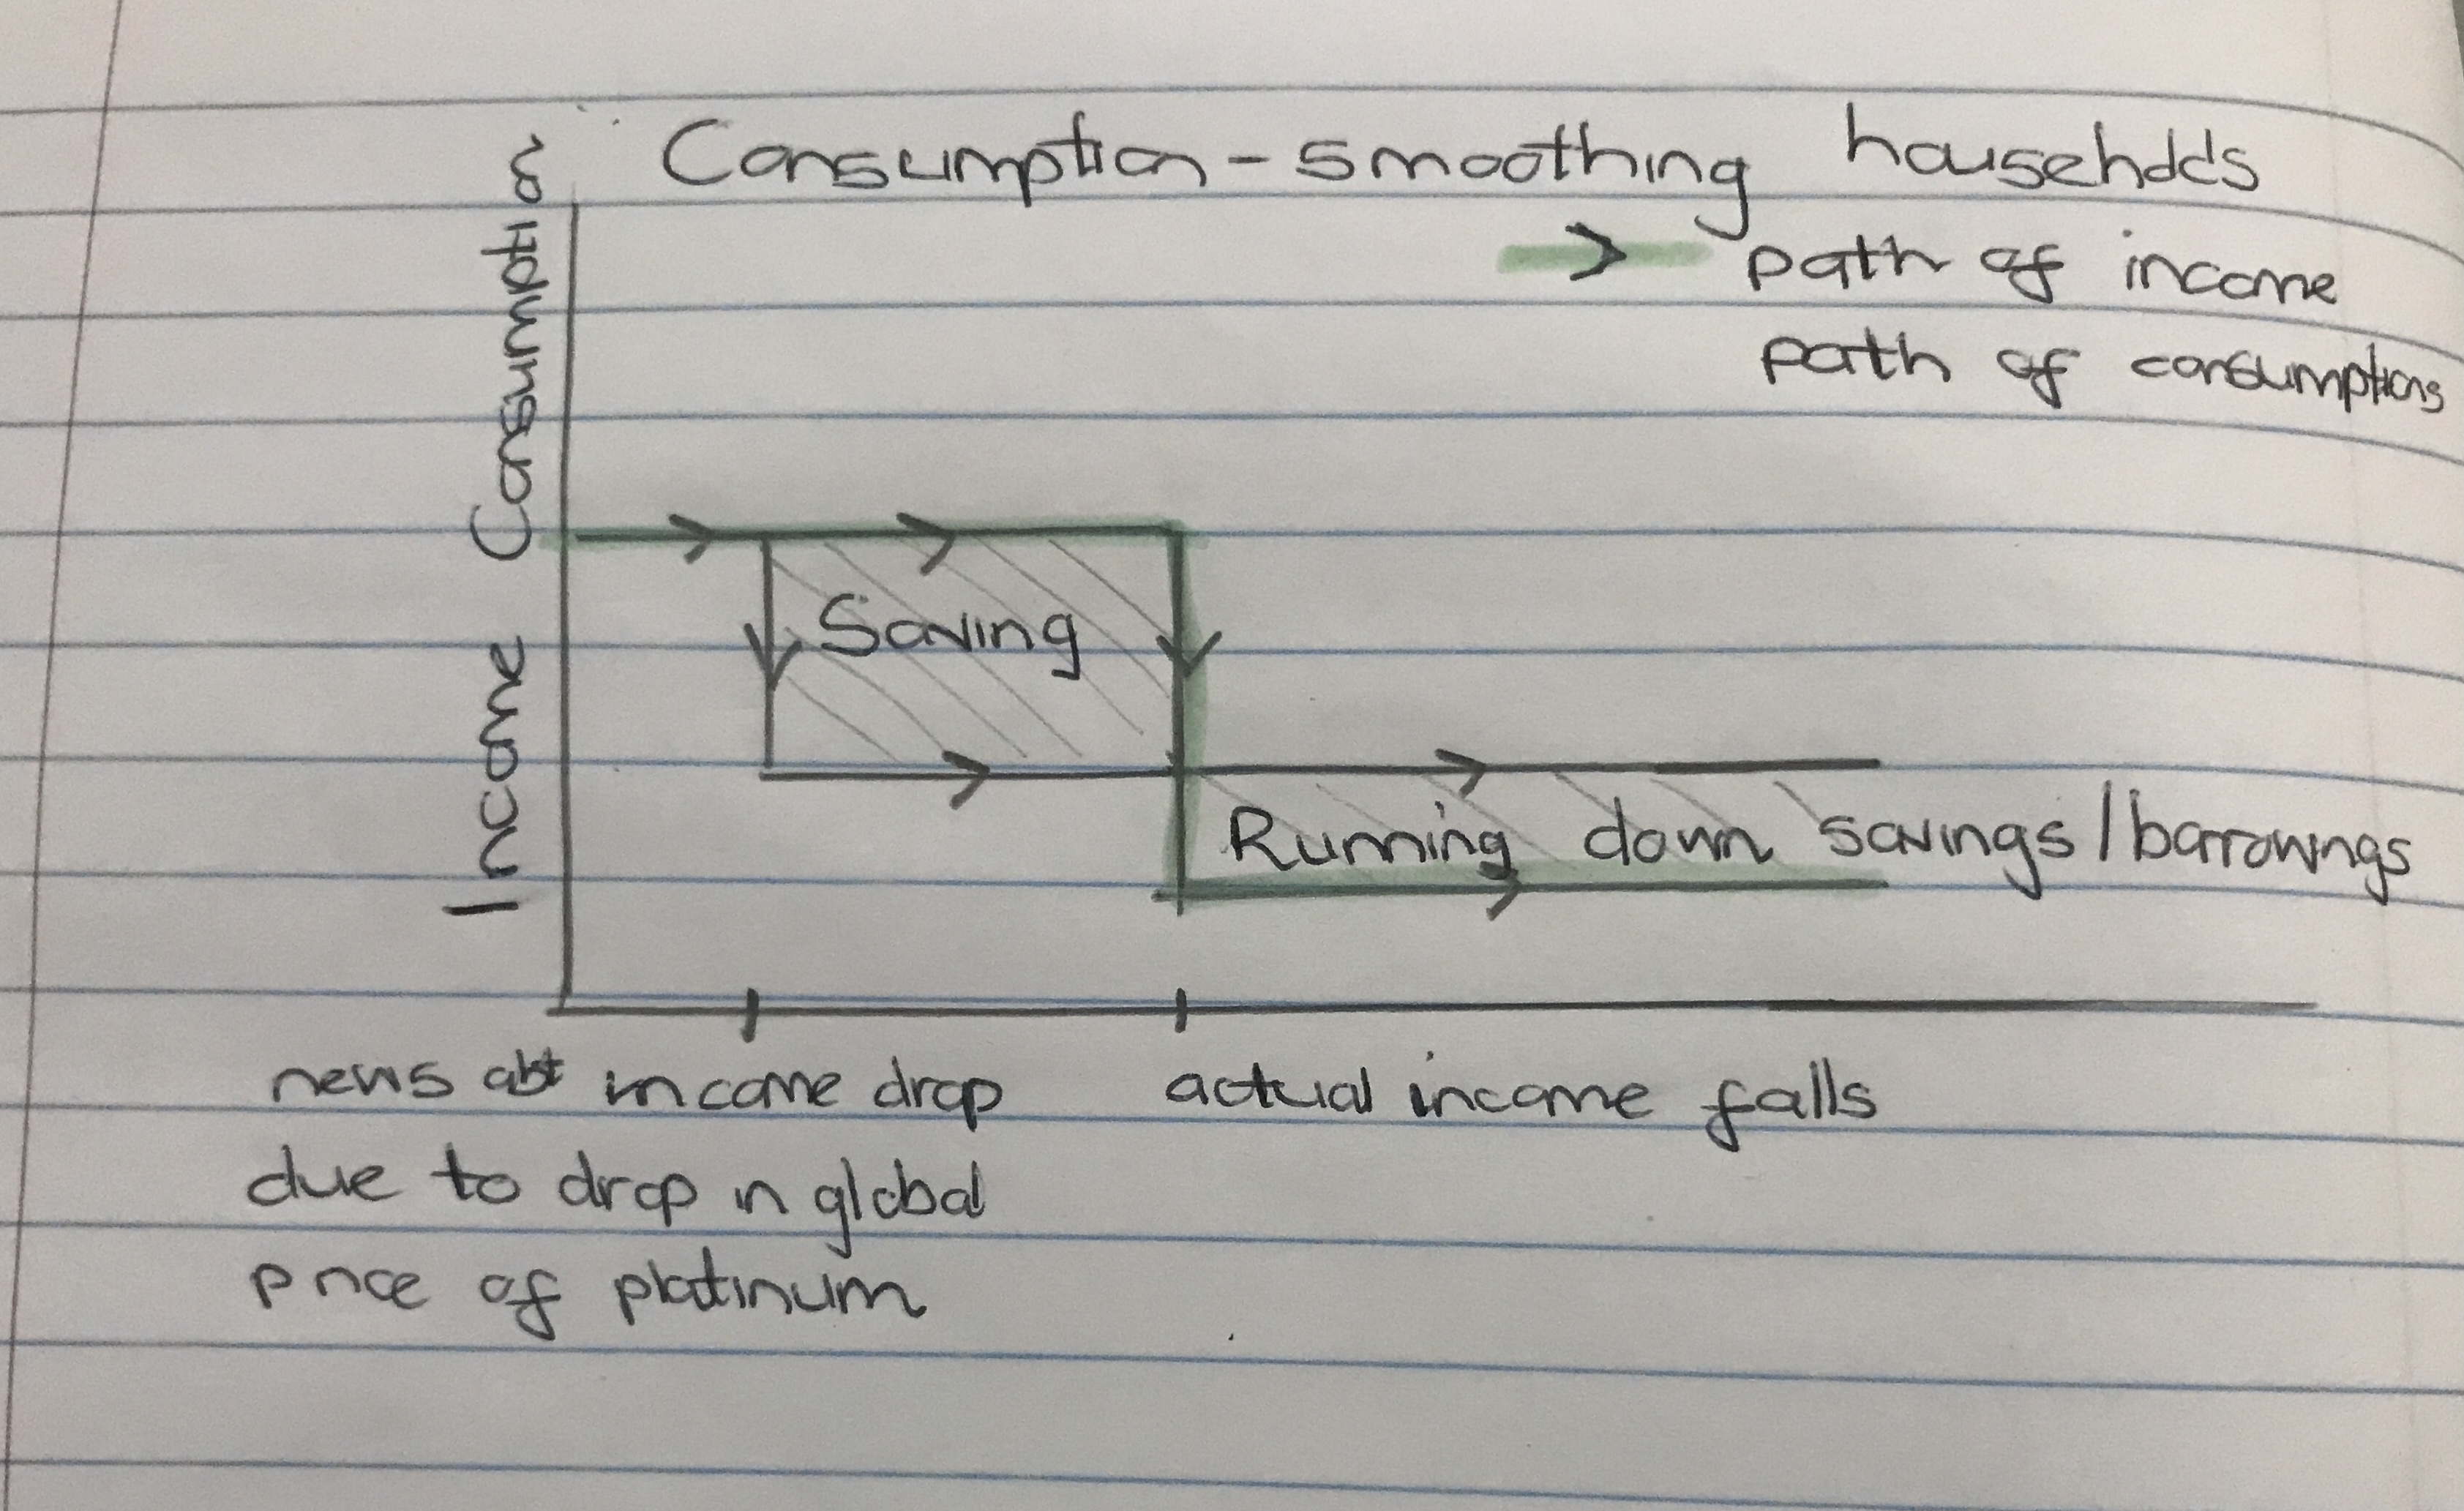 Consumption - smoothing households
path of income
path of consumptions
Income Consumption
Saving
Running down savings/borrowings
news abt income drop
due to drop in global
price of platinum
actual income falls